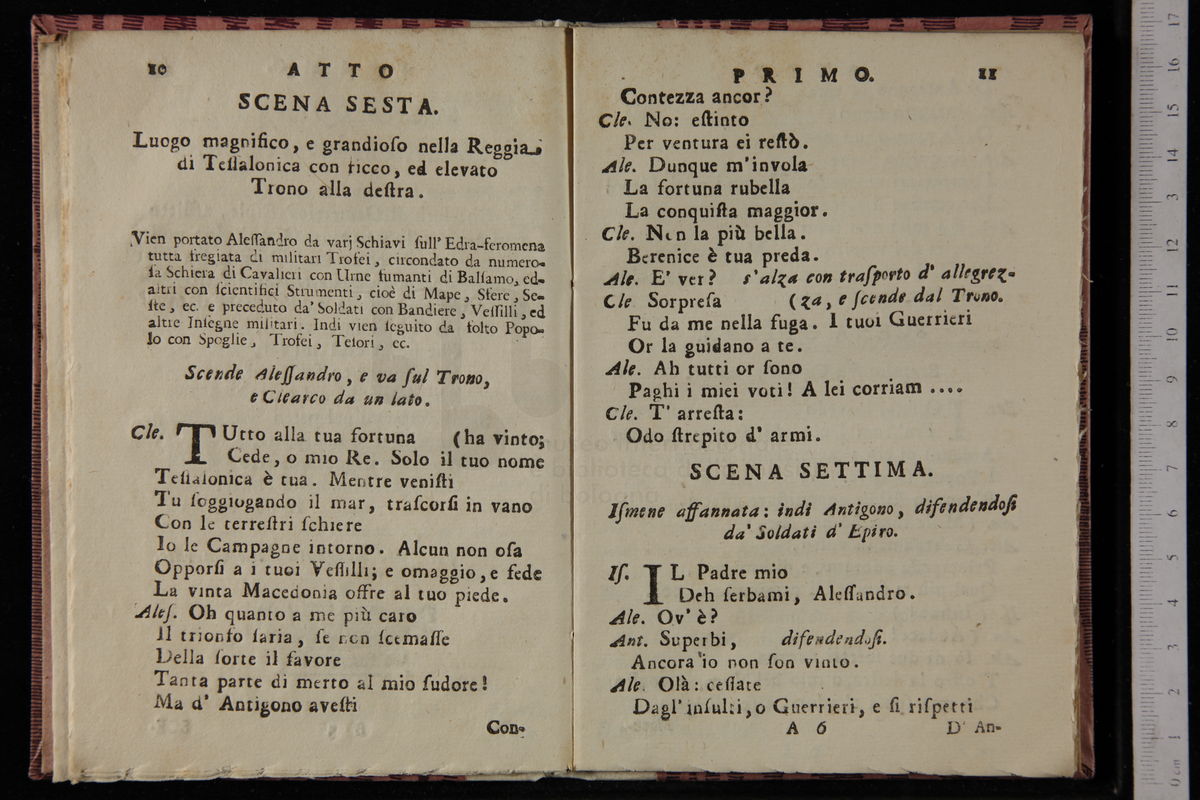 10 ATTO
SCENA SESTA.
Luogo magnifico, e grandioſo nella Reggia
di Teſſalonica con ricco, ed elevato
Trono alla deſtra.
Vien portato Aleſſandro da varj Schiavi ſull' Edra-feromena
tutta fregiata di militari Trofei, circondato da numero-
ſa Schiera di Cavalieri con Urne fumanti di Balſamo, ed
altri con ſcientifici Strumenti, cioè di Mape, Sfere, Se-
ſte, ec. e preceduto da' Soldati con Bandiere, Veſſilli, ed
altre Inſegne militari. Indi vien ſeguito da folto Popo-
lo con Spoglie, Trofei, Teſori, ec.
Scende Aleſſandro, e va ſul Trono,
e Clearco da un lato.
Cle. TUtto alla tua fortuna (ha vinto;
Cede, o mio Re. Solo il tuo nome
Teſſalonica è tua. Mentre veniſti
Tu ſoggiogando il mar, traſcorſi in vano
Con le terreſtri ſchiere
Io le Campagne intorno. Alcun non oſa
Opporſi a i tuoi Veſſilli; e omaggio, e fede
La vinta Macedonia offre al tuo piede.
Aleſ. Oh quanto a me più caro
Il trionfo ſaria, ſe non ſcemaſſe
Della ſorte il favore
Tanta parte di merto al mio ſudore!
Ma d' Antigono aveſti
Con-
PRIMO. 11
Contezza ancor?
Cle. No: eſtinto
Per ventura ei reſtò.
Ale. Dunque m'invola
La fortuna rubella
La conquiſta maggior.
Cle. Non la più bella.
Berenice è tua preda.
Ale. E' ver? s'alza con traſporto d' allegrez-
Cle Sorpreſa (za, e ſcende dal Trono.
Fu da me nella fuga. I tuoi Guerrieri
Or la guidano a te.
Ale. Ah tutti or ſono
Paghi i miei voti! A lei corriam ....
Cle. T' arreſta:
Odo ſtrepito d' armi.
SCENA SETTIMA.
Iſmene affannata: indi Antigono, difendendoſi
da' Soldati d' Epiro.
Iſ. IL Padre mio
Deh ſerbami, Aleſſandro.
Ale. Ov' è?
Ant. Superbi, difendendoſi.
Ancora io non ſon vinto.
Ale. Olà: ceſſate
Dagl' inſulti, o Guerrieri, e ſi riſpetti
A 6 D' An-